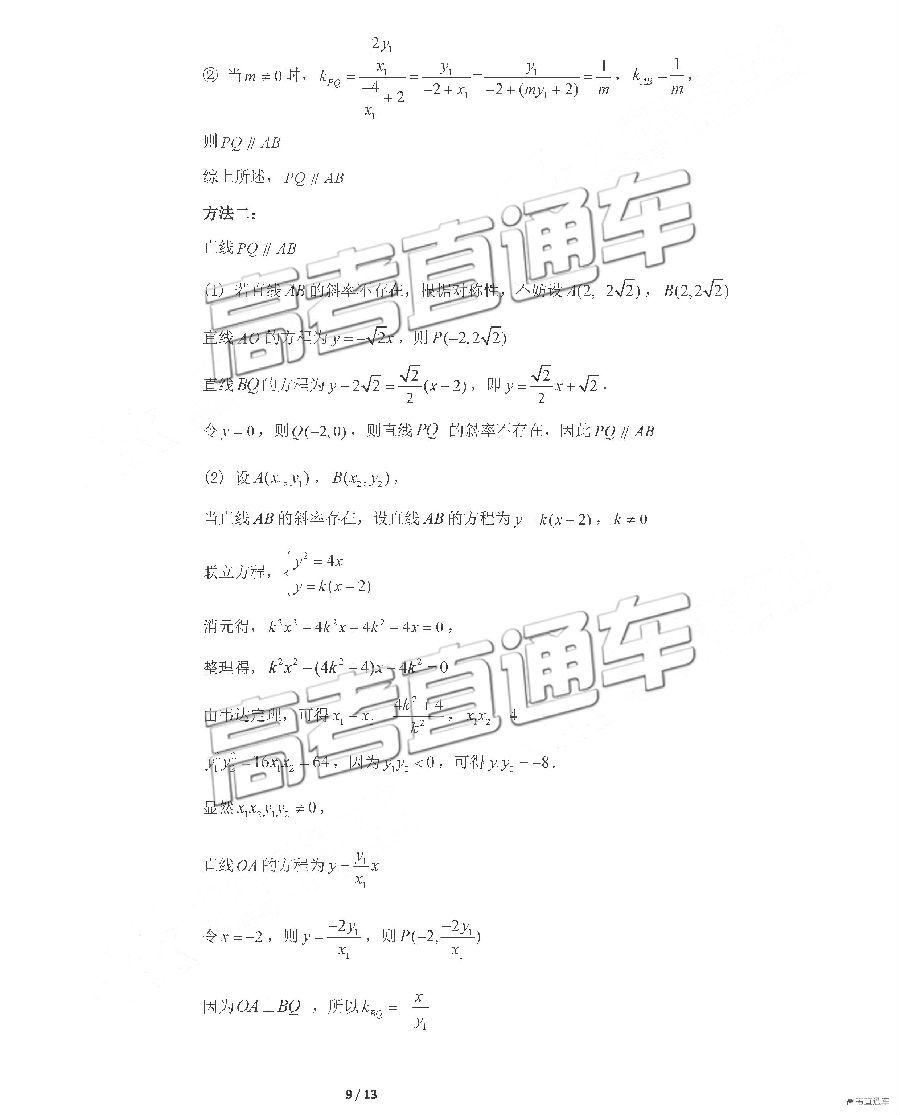 ② 当 m ≠ 0 时， k_PQ = (2y₁/x₁)/(−4/x₁ + 2) = y₁/(−2 + x₁) = y₁/(−2 + (my₁ + 2)) = 1/m， k_AB = 1/m，
则 PQ ∥ AB
综上所述， PQ ∥ AB
方法二：
直线 PQ ∥ AB
（1）若直线 AB 的斜率不存在，根据对称性，不妨设 A(2, 2√2)， B(2, 2√2)
直线 AO 的方程为 y = −√2x，则 P(−2, 2√2)
直线 BQ 的方程为 y − 2√2 = √2/2 (x − 2)，即 y = √2/2 x + √2．
令 y = 0，则 Q(−2, 0)，则直线 PQ 的斜率不存在，因此 PQ ∥ AB
（2）设 A(x₁, y₁)， B(x₂, y₂)，
当直线 AB 的斜率存在，设直线 AB 的方程为 y = k(x − 2)， k ≠ 0
联立方程， { y² = 4x
y = k(x − 2)
消元得， k²x² − 4k²x + 4k² − 4x = 0，
整理得， k²x² − (4k² + 4)x + 4k² = 0
由韦达定理，可得 x₁ + x₂ = (4k² + 4)/k²， x₁x₂ = 4
y₁²y₂² = 16x₁x₂ = 64，因为 y₁y₂ < 0，可得 y₁y₂ = −8．
显然 x₁x₂y₁y₂ ≠ 0，
直线 OA 的方程为 y = y₁/x₁ x
令 x = −2，则 y = −2y₁/x₁，则 P(−2, −2y₁/x₁)
因为 OA ⊥ BQ ，所以 k_BQ = x/y₁
高考直通车
高考直通车
9 / 13
高考直通车